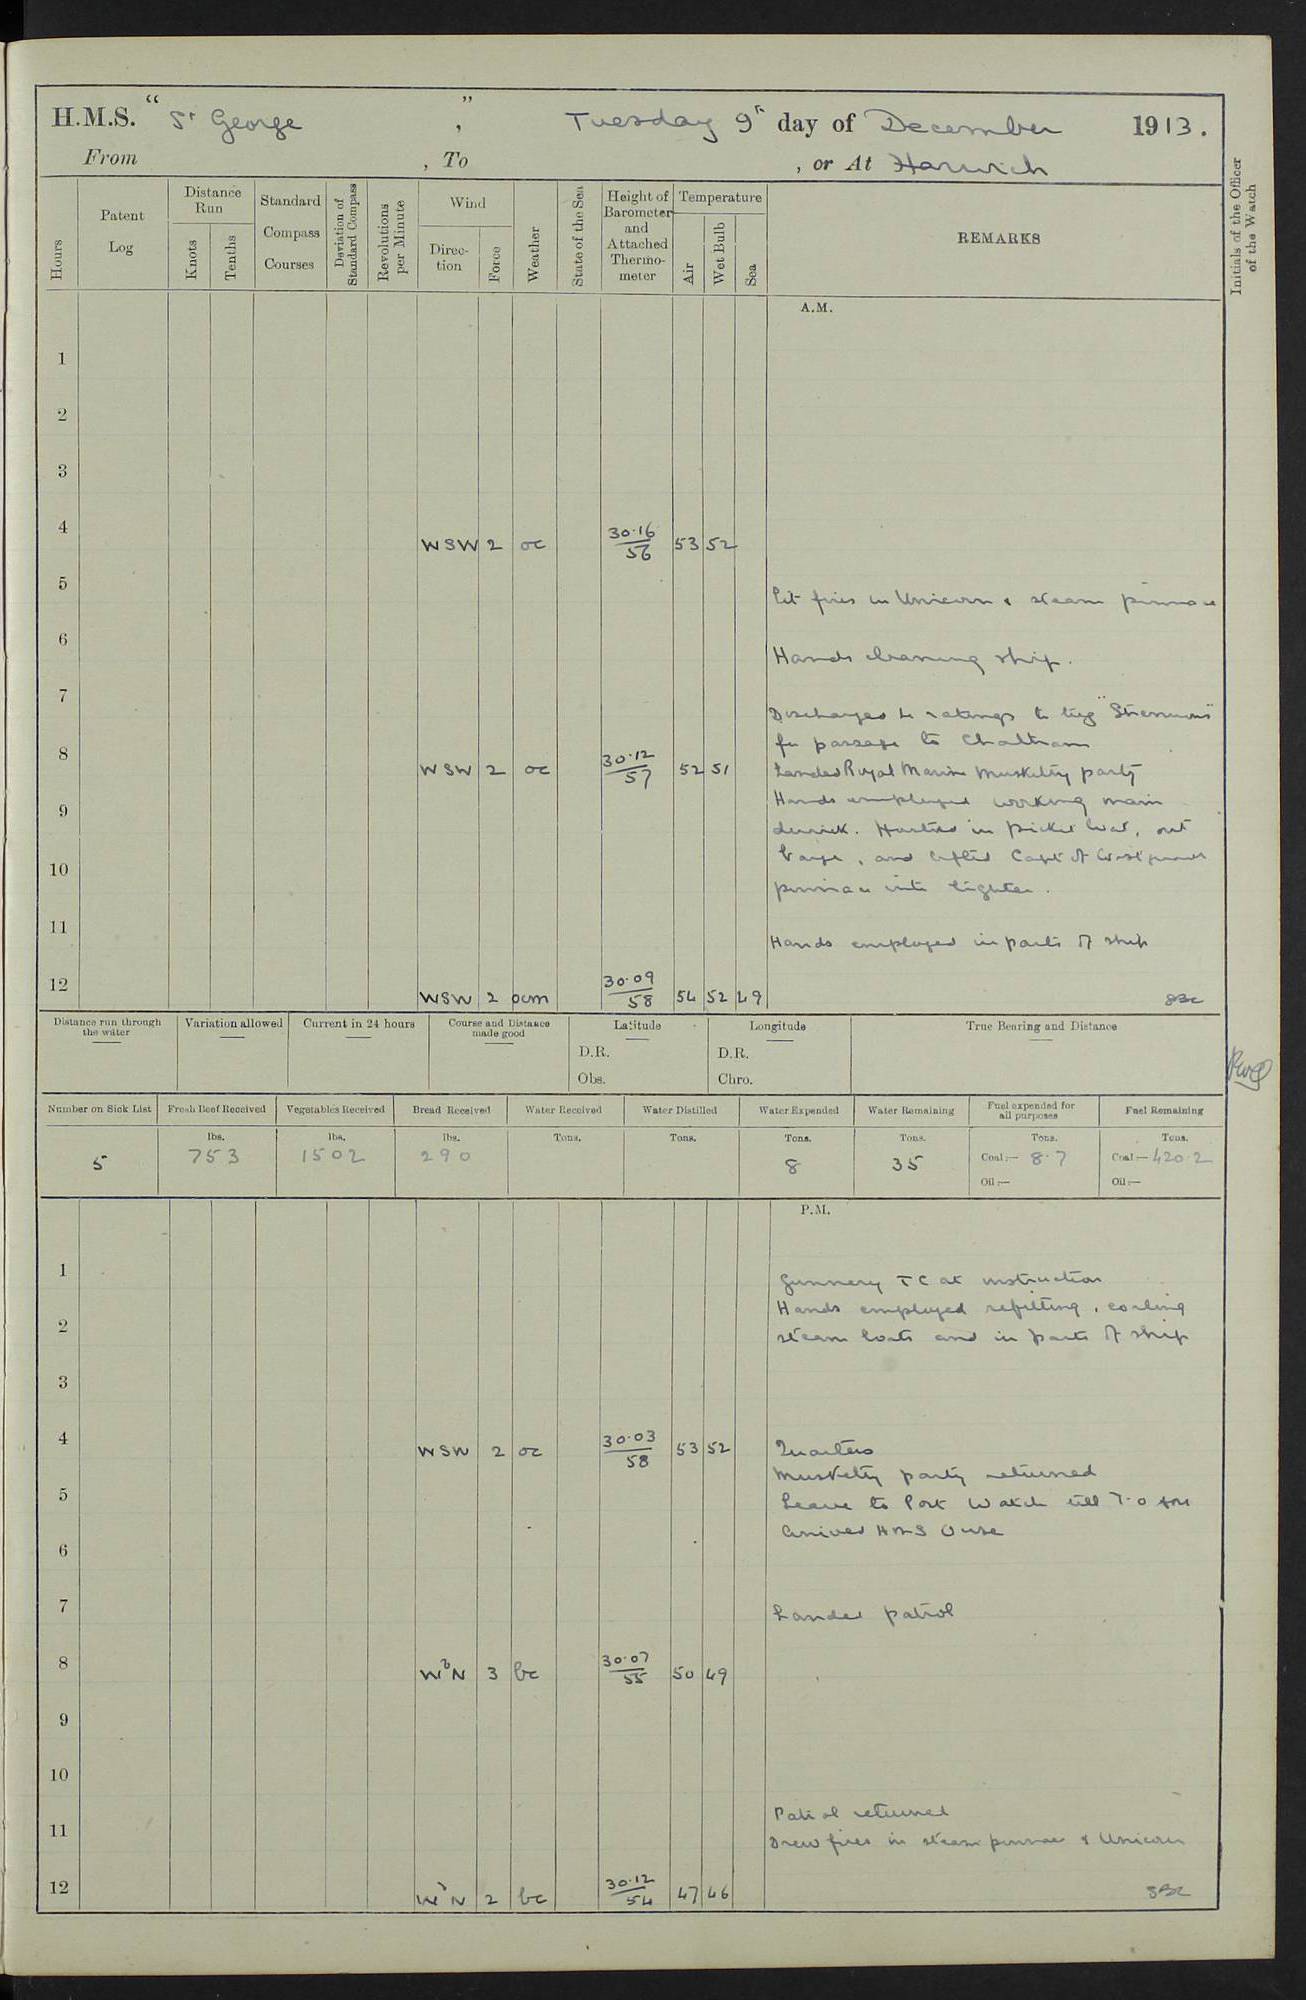 H.M.S. " St George " , Tuesday 9th day of December 1913.
From , To , or At Harwich
Hours
Patent Log
Distance Run
Knots
Tenths
Standard Compass Courses
Deviation of Standard Compass
Revolutions per Minute
Wind
Direction
Force
Weather
State of the Sea
Height of Barometer and Attached Thermometer
Temperature
Air
Wet Bulb
Sea
REMARKS
Initials of the Officer of the Watch
A.M.
1
2
3
4 WSW 2 oc 30.16 56 53 52
5
Lit fires in Unicorn & steam pinnace
6
Hands cleaning ship.
7
Discharged 4 ratings to tug "Strenuous"
for passage to Chatham
8 WSW 2 oc 30.12 57 52 51 Landed Royal Marine Musketry party
Hands employed working main
9
derrick. Hoisted in picket boat, out
barge, and lifted Capt of
10
pinnace into lighter.
11
Hands employed in parts of ship
12 WSW 2 ocm 30.09 58 54 52 49
Distance run through the water
Variation allowed
Current in 24 hours
Course and Distance made good
Latitude
D.R.
Obs.
Longitude
D.R.
Chro.
True Bearing and Distance
Number on Sick List
Fresh Beef Received
Vegetables Received
Bread Received
Water Received
Water Distilled
Water Expended
Water Remaining
Fuel expended for all purposes
Fuel Remaining
5
lbs. 753
lbs. 1502
lbs. 290
Tons.
Tons.
Tons. 8
Tons. 35
Tons. Coal:— 8.7 Oil:—
Tons. Coal:— 420.2 Oil:—
P.M.
1
Gunnery TC at instruction
Hands employed refitting, coaling
2
steam boats and in parts of ship
3
4 WSW 2 oc 30.03 58 53 52 Quarters
Musketry party returned
5
Leave to Port Watch till 7.0 am
Arrived HMS Ouse
6
7
Landed patrol
8 WbN 3 bc 30.07 55 50 49
9
10
Patrol returned
11
Drew fires in steam pinnace & Unicorn
12 WbN 2 bc 30.12 54 47 46